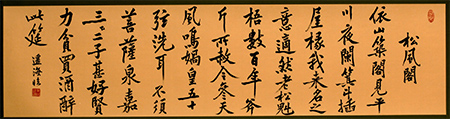 松風閣
依山築閣見平
川夜闌箕斗插
屋椽我來名之
意適然老松魁
梧數百年斧
斤所赦今參天
風鳴媧皇五十
弦洗耳不須
菩薩泉嘉
二三子甚好賢
力貧買酒醉
此筵